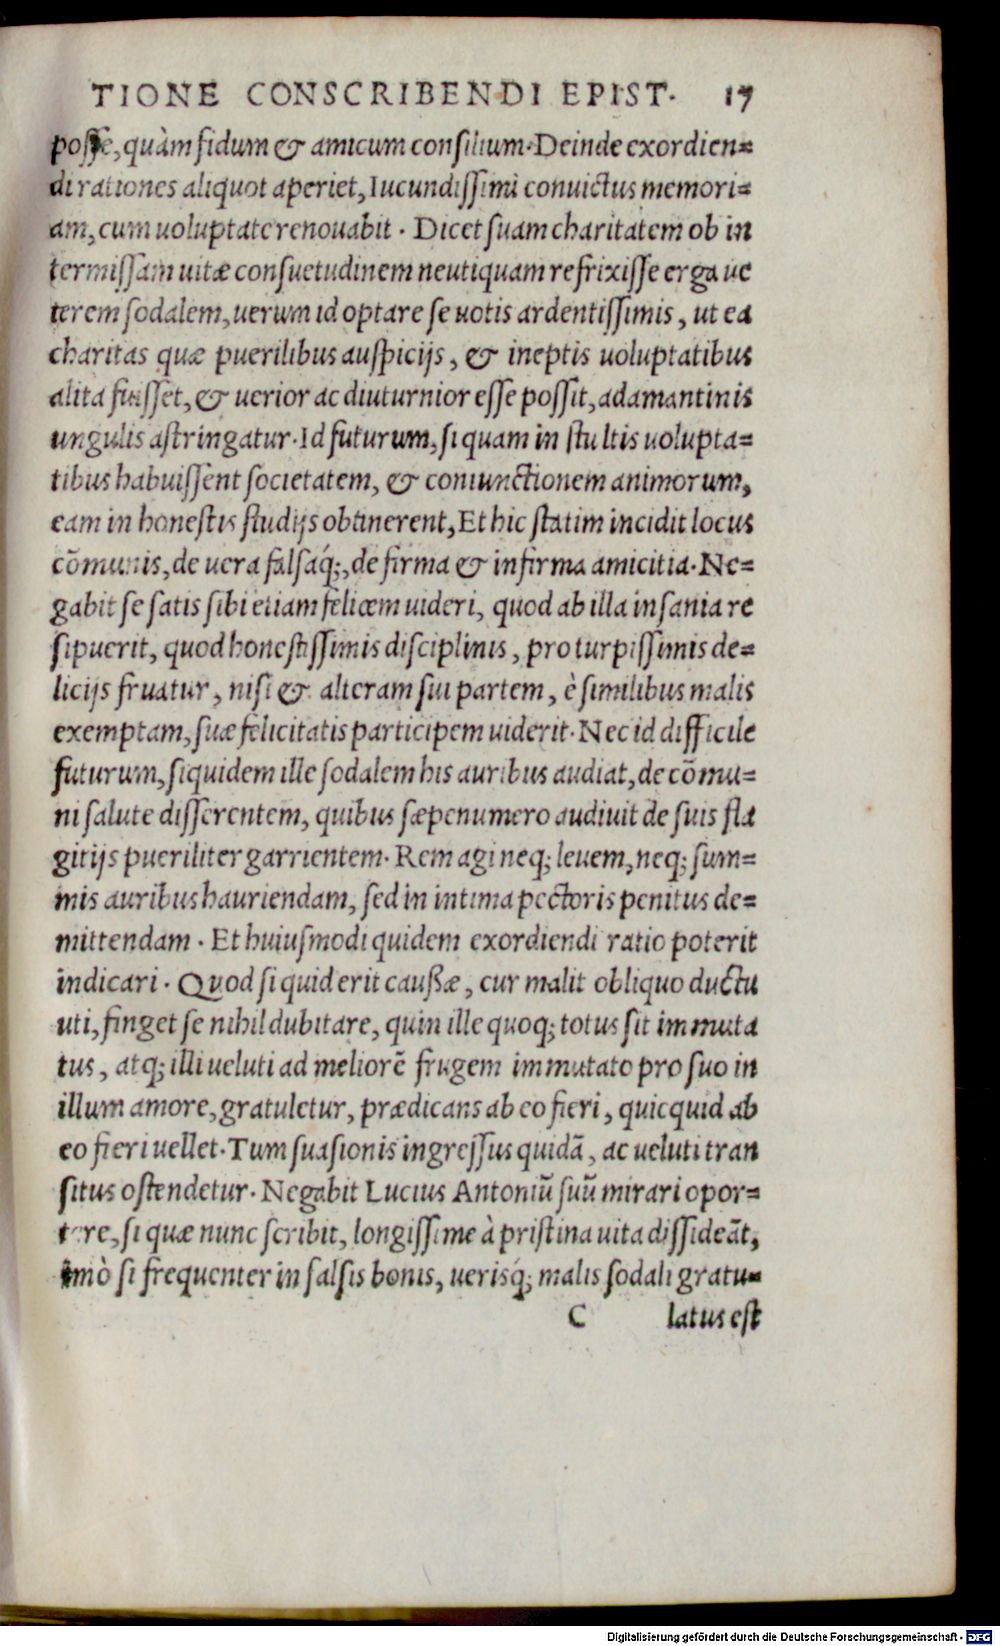 TIONE CONSCRIBENDI EPIST. 17
posse, quàm fidum & amicum consilium. Deinde exordien=
di rationes aliquot aperiet, Iucundissimi conuictus memori=
am, cum uoluptate renouabit. Dicet suam charitatem ob in
termissam uitæ consuetudinem neutiquam refrixisse erga ue
terem sodalem, uerum id optare se uotis ardentissimis, ut ea
charitas quæ puerilibus auspicijs, & ineptis uoluptatibus
alita fuisset, & uerior ac diuturnior esse possit, adamantinis
ungulis astringatur. Id futurum, si quam in stultis uolupta=
tibus habuissent societatem, & coniunctionem animorum,
eam in honestis studijs obtinerent, Et hic statim incidit locus
cōmunis, de uera falsaq́;, de firma & infirma amicitia. Ne=
gabit se satis sibi etiam felicem uideri, quod ab illa insania re
sipuerit, quod honestissimis disciplinis, pro turpissimis de=
licijs fruatur, nisi & alteram sui partem, è similibus malis
exemptam, suæ felicitatis participem uiderit. Nec id difficile
futurum, siquidem ille sodalem his auribus audiat, de cōmu=
ni salute disserentem, quibus sæpenumero audiuit de suis fla
gitijs pueriliter garrientem. Rem agi neq; leuem, neq; sum=
mis auribus hauriendam, sed in intima pectoris penitus de=
mittendam. Et huiusmodi quidem exordiendi ratio poterit
indicari. Quod si quid erit caußæ, cur malit obliquo ductu
uti, finget se nihil dubitare, quin ille quoq; totus sit immuta
tus, atq; illi ueluti ad meliorē frugem immutato pro suo in
illum amore, gratuletur, prædicans ab eo fieri, quicquid ab
eo fieri uellet. Tum suasionis ingressus quidā, ac ueluti tran
situs ostendetur. Negabit Lucius Antoniū suū mirari opor=
tere, si quæ nunc scribit, longissime à pristina uita dissideāt,
imò si frequenter in falsis bonis, uerisq́; malis sodali gratu=
C latus est
Digitalisierung gefördert durch die Deutsche Forschungsgemeinschaft - DFG